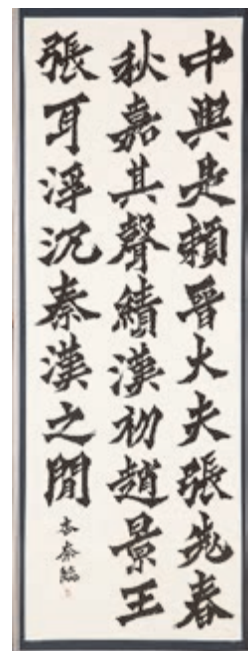 中興是賴晉大夫張老春
秋嘉其聲績漢初趙景王
張耳浮沉秦漢之閒
杏奈臨